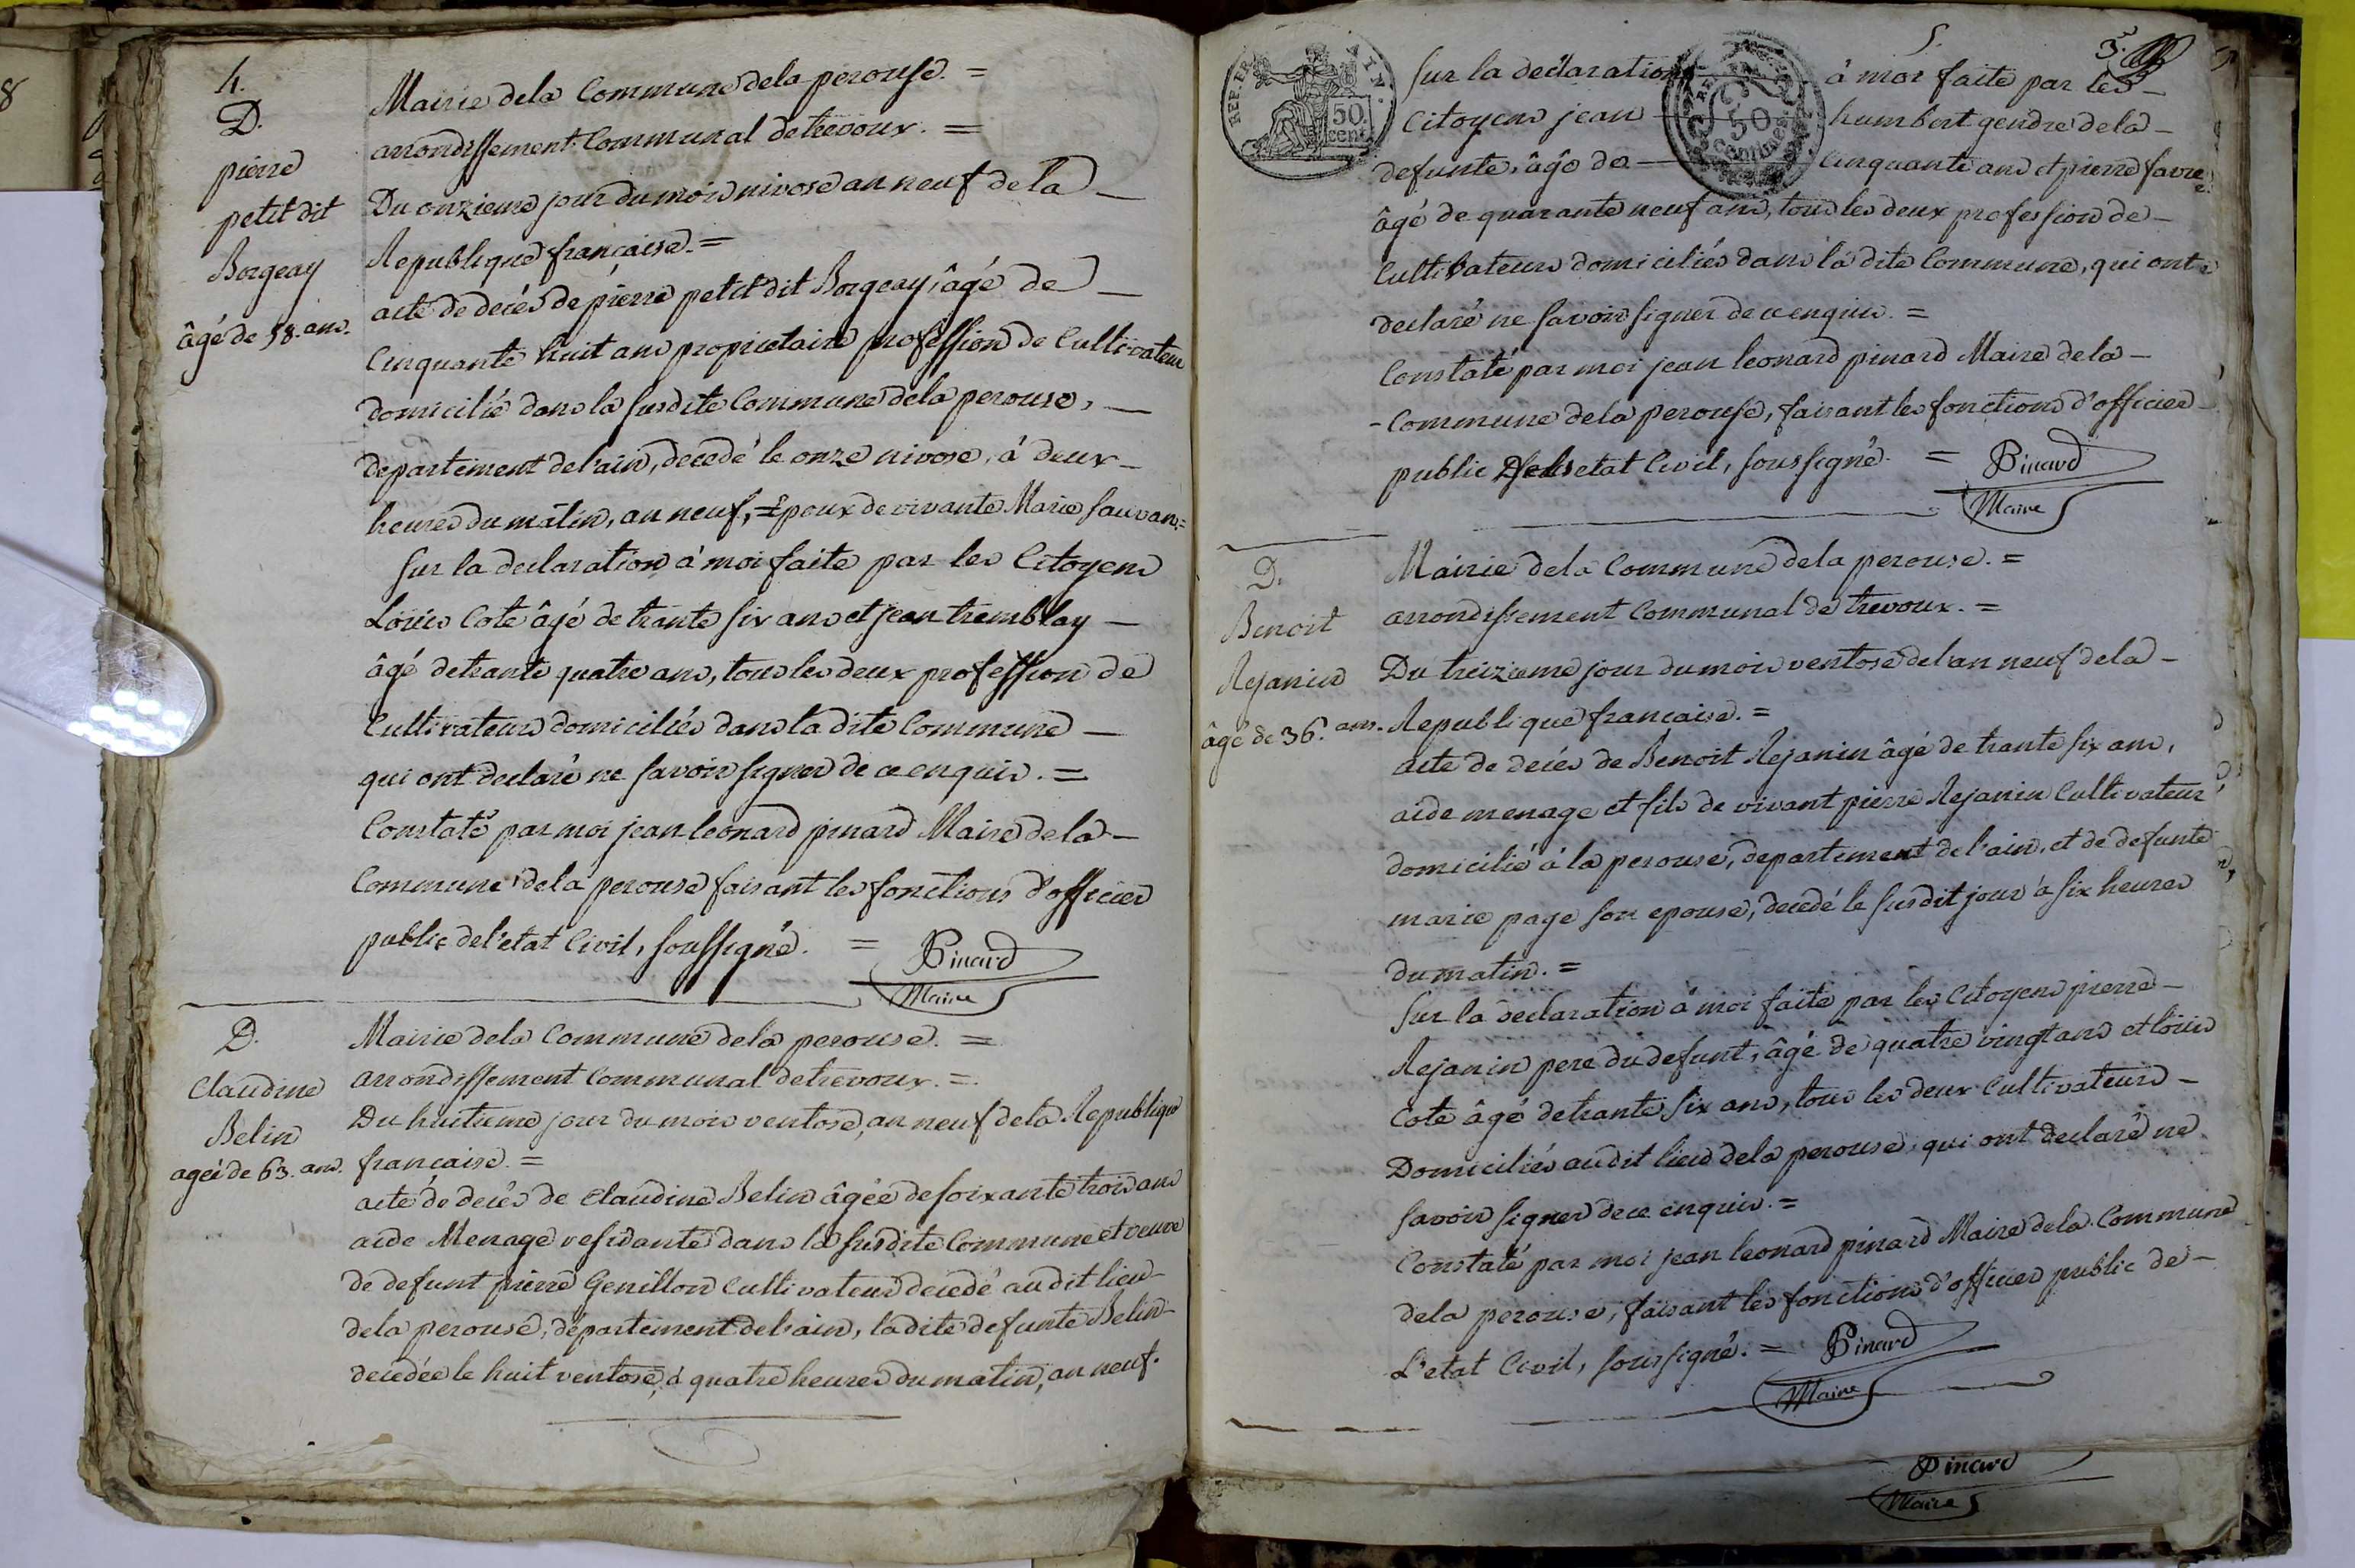 4.
D.
pierre
petit dit
Borgeay
âgé de 58. ans.
Mairie dela Commune dela perouse. =
arrondissement Communal de trevoux. =
Du onzieme jour du mois nivose an neuf de la
Republique française. =
acte de decés de pierre petit dit Borgeay, âgé de
Cinquante huit ans proprietaire profession de Cultivateur
domicilié dans la susdite Commune dela perouse,
departement del'ain, decedé le onze nivose, à deux
heures du matin, an neuf, = Epoux de vivante Marie Sauvan =
Sur la declaration à moi faite par les Citoyens
Loüis Cote âgé de trante six ans et jean tremblay
âgé de trante quatre ans, tous les deux profession de
Cultivateurs domiciliés dans la dite Commune
qui ont declaré ne savoir signer de ce enquis. =
Constaté par moi jean leonard pinard Maire dela
Commune dela perouse faisant les fonctions d'officier
public del'etat Civil, soussigné. = Pinard
Maire
D.
Claudine
Belin
ageé de 63. ans.
Mairie dela Commune dela perouse. =
arrondissement Communal de trevoux. =
Du huitieme jour du mois ventose, an neuf dela Republique
française. =
acte de decés de Claudine Belin âgée de soixante trois ans
aide Menage residante dans la susdite Commune et veuve
de defunt pierre Genillon Cultivateur decedé au dit lieu
dela perouse, département del'ain, la dite defunte Belin
decedée le huit ventose, à quatre heures du matin, an neuf.
5.
5.
REP. FR.
50. cent.
50
centimes
Sur la declaration à moi faite par les
Citoyens jean humbert gendre dela
defunte, âgé de Cinquante ans et pierre favre
âgé de quarante neuf ans, tous les deux profession de
Cultivateurs domiciliés dans la dite Commune, qui ont
declaré ne savoir signer de ce enquis. =
Constaté par moi jean leonard pinard Maire dela
Commune dela perouse, faisant les fonctions d'officier
public etat Civil, soussigné. = Pinard
Maire
D.
Benoit
Rejanin
âgé de 36. ans.
Mairie dela Commune dela perouse. =
arrondissement Communal de trevoux. =
Du treizieme jour du mois ventose del'an neuf dela
Republique française. =
acte de decés de Benoit Rejanin âgé de trante six ans,
aide menage et fils de vivant pierre Rejanin Cultivateur
domicilié à la perouse, departement del'ain, et de defunte
marie page son epouse, decedé le susdit jour à six heures
du matin. =
Sur la declaration à moi faite par les Citoyens pierre
Rejanin pere du defunt, âgé de quatre vingt ans et loüis
Cote âgé de trante six ans, tous les deux Cultivateurs
Domiciliés au dit lieu dela perouse, qui ont declaré ne
savoir signer de ce enquis. =
Constaté par moi jean leonard pinard Maire dela Commune
dela perouse, faisant les fonctions d'officier public de
L'etat Civil, soussigné. = Pinard
Maire
Pinard
Maire